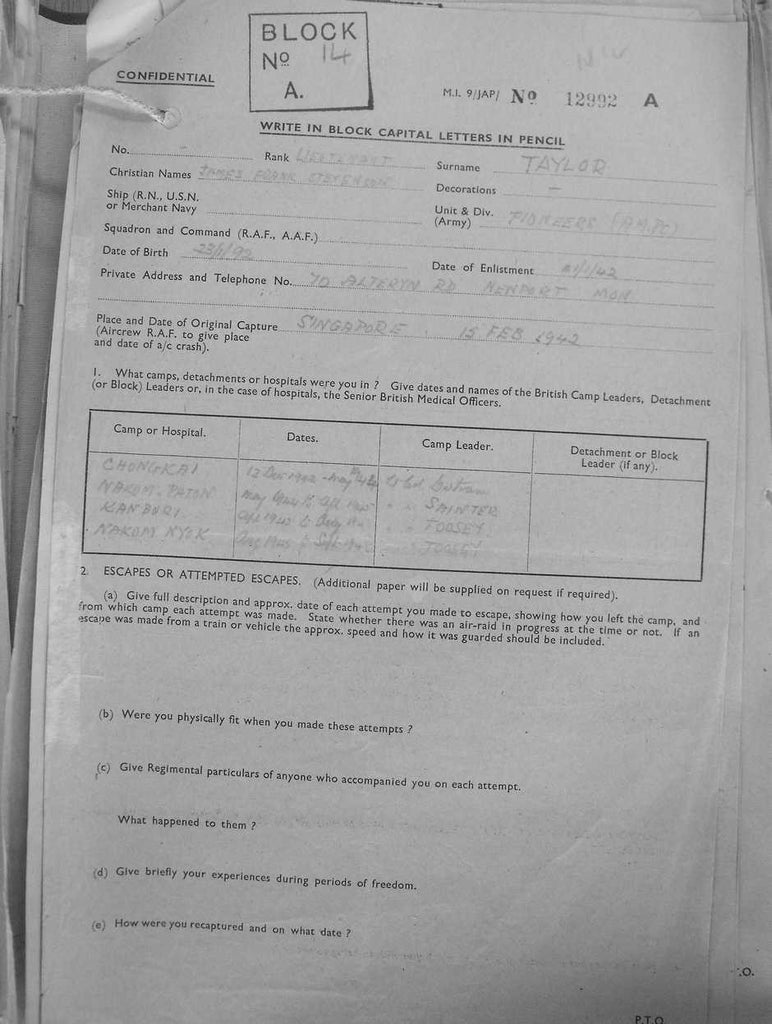 BLOCK
Nº 14
A.
CONFIDENTIAL
M.I. 9/JAP/ Nº 12992 A
WRITE IN BLOCK CAPITAL LETTERS IN PENCIL
No. Rank LIEUTENANT Surname TAYLOR
Christian Names JAMES FRANK STEVENSON Decorations —
Ship (R.N., U.S.N.
or Merchant Navy
Unit & Div.
(Army) PIONEERS
Squadron and Command (R.A.F., A.A.F.)
Date of Birth Date of Enlistment
Private Address and Telephone No. 70 ALTERYN RD NEWPORT MON
Place and Date of Original Capture SINGAPORE. 15 FEB 1942
(Aircrew R.A.F. to give place
and date of a/c crash).
1. What camps, detachments or hospitals were you in ? Give dates and names of the British Camp Leaders, Detachment
(or Block) Leaders or, in the case of hospitals, the Senior British Medical Officers.
Camp or Hospital. Dates. Camp Leader. Detachment or Block
Leader (if any).
CHONGKAI
NAKOM PATON SAINTER
KANBURI TOOSEY
NAKOM NYOK TOOSEY
2. ESCAPES OR ATTEMPTED ESCAPES. (Additional paper will be supplied on request if required).
(a) Give full description and approx. date of each attempt you made to escape, showing how you left the camp, and
from which camp each attempt was made. State whether there was an air-raid in progress at the time or not. If an
escape was made from a train or vehicle the approx. speed and how it was guarded should be included.
(b) Were you physically fit when you made these attempts ?
(c) Give Regimental particulars of anyone who accompanied you on each attempt.
What happened to them ?
(d) Give briefly your experiences during periods of freedom.
(e) How were you recaptured and on what date ?
.O.
P.T.O.